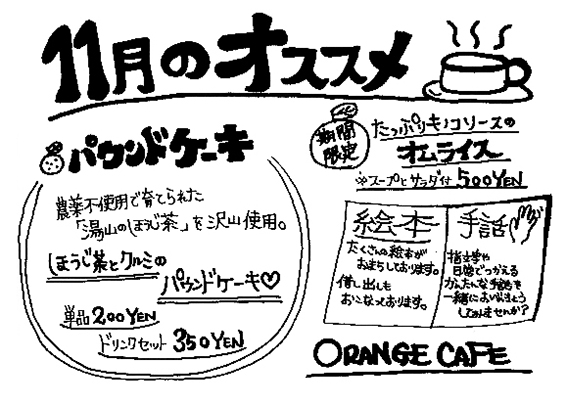 11月のオススメ
パウンドケーキ
農薬不使用で育てられた
「湯山のほうじ茶」を沢山使用。
ほうじ茶とクルミの
パウンドケーキ♡
単品 200YEN
ドリンクセット 350YEN
期間
限定
たっぷりキノコソースの
オムライス
※スープとサラダ付 500YEN
絵本
たくさんの絵本が
おまちしております。
借し出しも
おこなっております。
手話
指文字や
日常でつかえる
かんたんな手話を
一緒におぼえましょう
してみませんか?
ORANGE CAFE